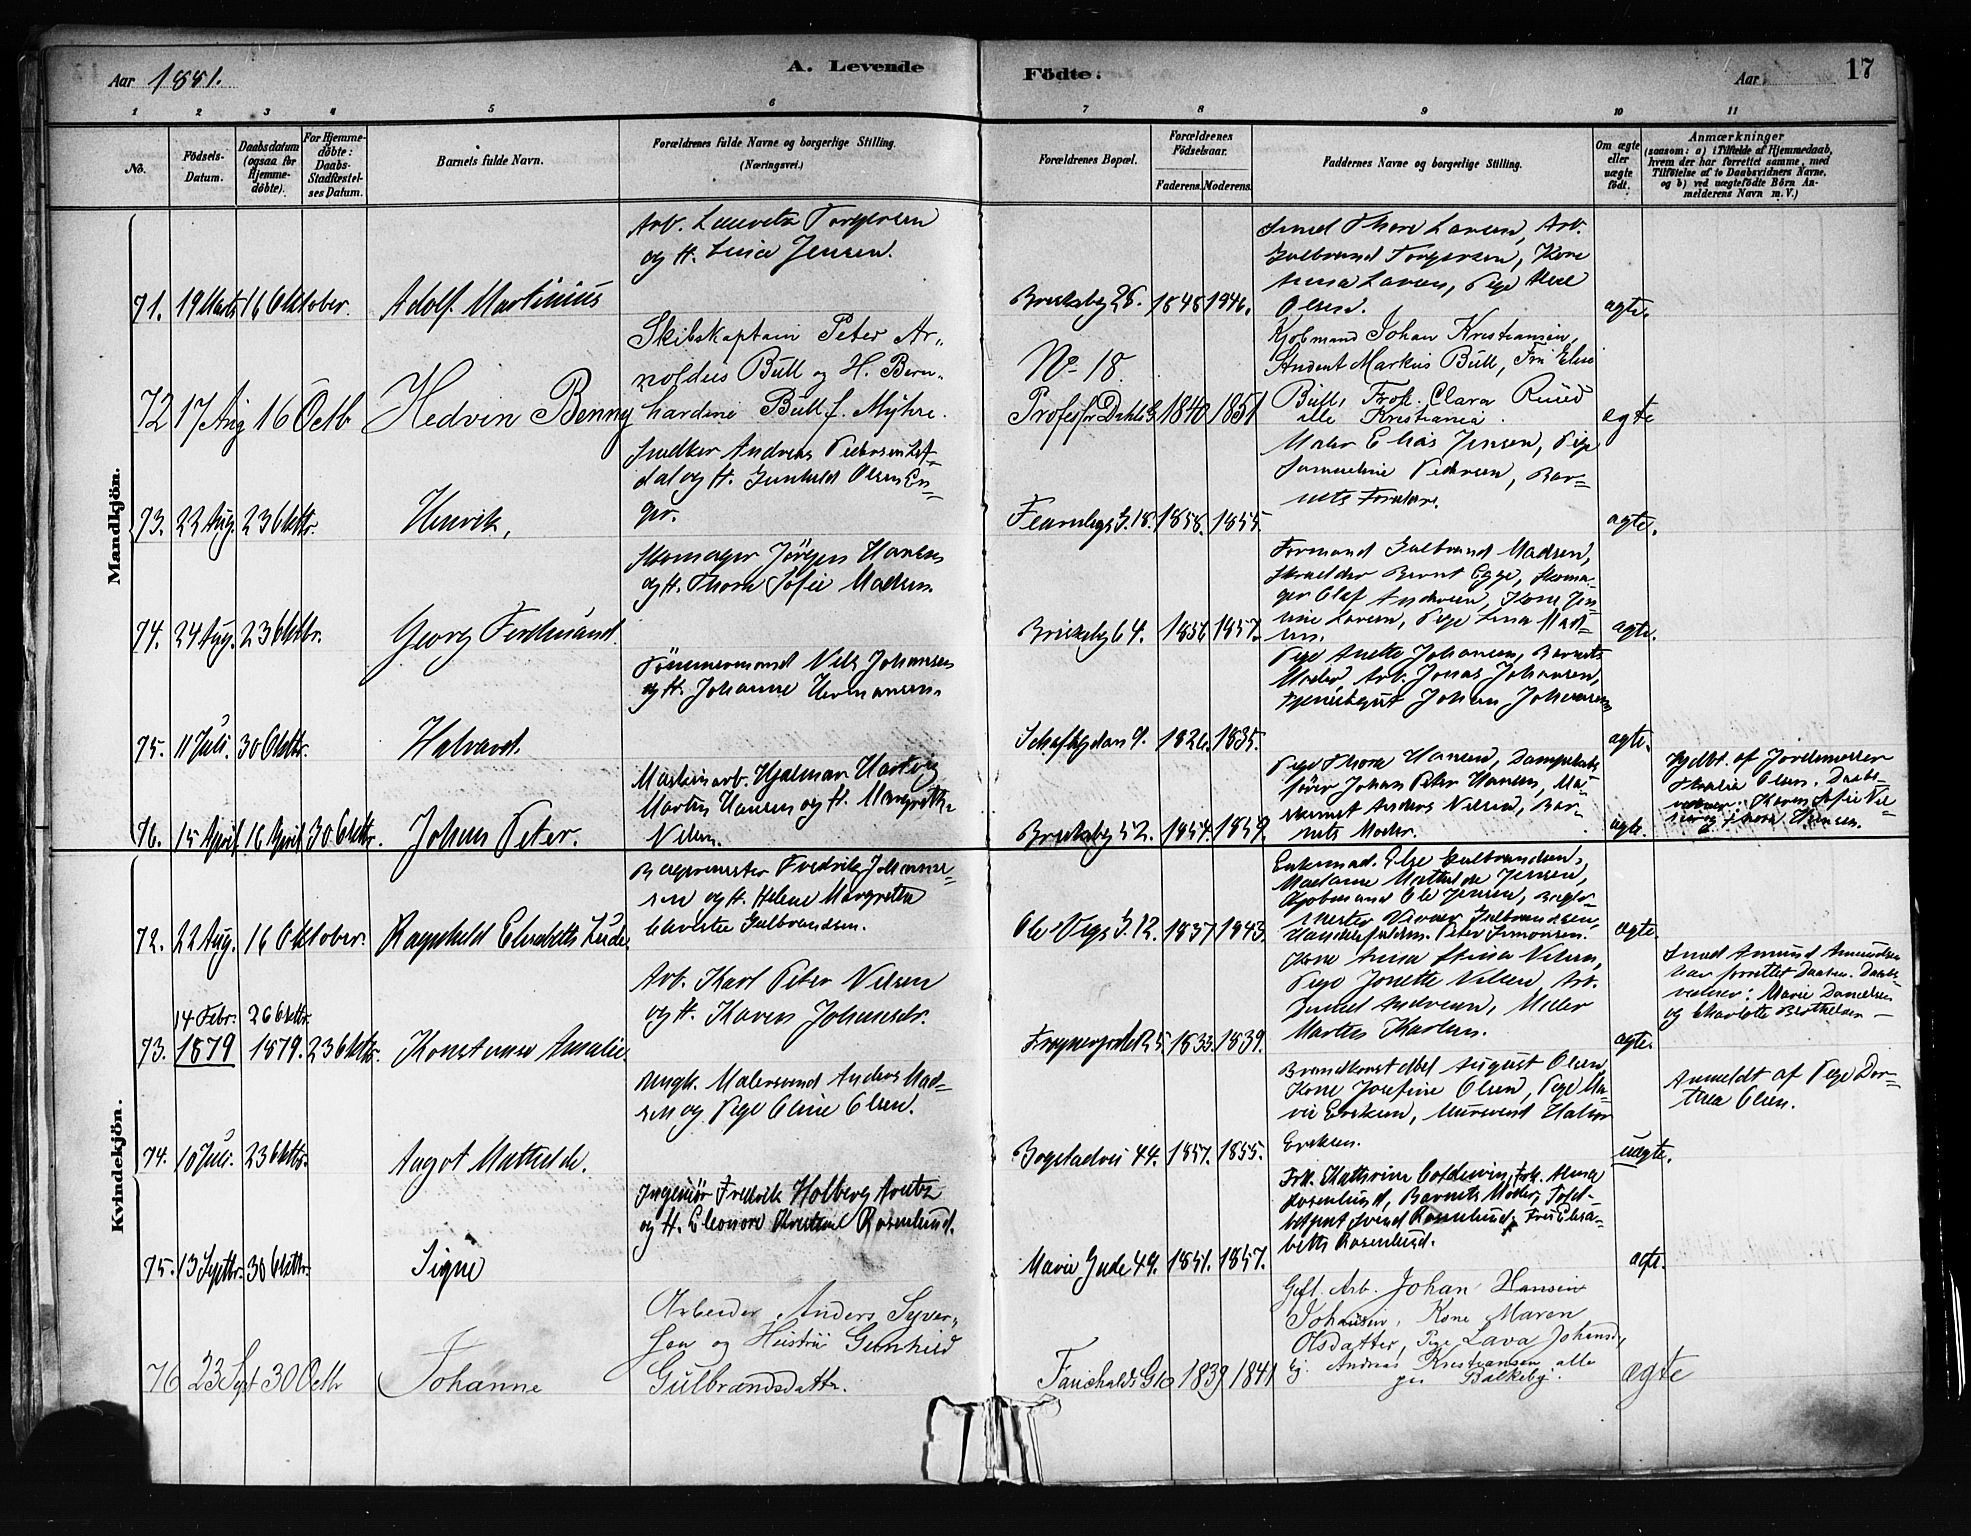 Aar 1881.
A. Levende
Födte.
Aar
17
1 2 3 4 5 6 7 8 9 10 11
No.
Födsels-
Datum.
Daabsdatum
(ogsaa for
Hjemme-
döbte).
For Hjemme-
döbte:
Daabs-
Stadfæstel-
ses Datum.
Barnets fulde Navn.
Forældrenes fulde Navne og borgerlige Stilling.
(Næringsvei.)
Forældrenes Bopæl.
Forældrenes
Födselsaar.
Faderens. Moderens.
Faddernes Navne og borgerlige Stilling.
Om ægte
eller
uægte
födt.
Anmærkninger
(saasom: a) i Tilfælde af Hjemmedaab,
hvem der har forrettet samme, med
Tilföielse af to Daabsvidners Navne,
og b) ved uægtefödte Börn An-
melderens Navn m. V.)
Mandkjön.
71. 19 Marts 16 Oktober. Adolf Martinius
Arb. Lauritz Torgersen
og H. Jensen.
Briskeby 26. 1848 1846.
Smed Thore Larsen, Arb.
Gulbrand Torgersen, Kone
Anna Larsen, Pige
Olsen.
ægte.
72 17 Aug 16 Octb Hedvin Benny
Skibskaptain Peter Ar-
noldus Bull og H. Bern-
hardine Bull f. Myhre.
No 18
Professor Dahls G. 1840 1851
Kjøbmand Johan Kristiansen,
Student Markus Bull, Fru Elise
Bull, Frøk. Clara Ruud
alle Kristiania.
ægte
73. 22 Aug. 23 Oktbr. Henrik,
Snedker Andreas Pedersen
dal og H. Gunhild Olsen En-
ger.
Fearnleys G. 18. 1858. 1855.
Maler Elias Jensen, Pige
Pedersen, Bar-
nets Forældre.
ægte.
74. 24 Aug. 23 Oktbr. Georg Ferdinand.
Skomager Jörgen Hansen
og H. Thora Sofie Madsen.
Briskeby 64. 1856 1857.
Formand Gulbrand Madsen,
Skrædder Bernt Egge, Skoma-
ger Olaf Andersen, Kone Jen-
sine Larsen, Pige Lina Mad-
sen.
ægte.
75. 11 Juli. 30 Oktbr. Halvard.
Tömmermand Nils Johansen
og H. Johanne Hermansen.
9. 1826. 1835.
Pige Anette Johansen, Barnets
Moder, Arb. Jonas Johansen,
Tjenestegut Johan Johansen
ægte.
76. 15 April 16 April 30 Oktbr. Johan Peter.
Maskinarb. Hjalmar Hartvig
Martin Hansen og H. Margrethe
Nilsen.
Briskeby 52. 1854. 1859.
Pige Thora Hansen, Dampskibs-
förer Johan Peter Hansen, Ma-
skinist Anders Nilsen, Bar-
nets Moder.
ægte.
Hjdbt. af Jordemoder
Thalia Olsen. Daabs-
vidner: Karen Sofie Nil-
sen og Thora Hansen.
Kvindekjön.
72. 22 Aug. 16 Oktober. Ragnhild Elisabeth
Bagermester Fredrik Johanne-
sen og H. Helene Margrethe
Gulbrandsen.
Ole Vigs G. 12. 1837 1843.
Enkemad. Else Gulbrandsen,
Madame Mathilde Jensen,
Kjøbmand Ole Jensen,
Gulbrandsen,
Peter Simonsen.
ægte.
73. 14 Febr. 1879 26 Oktbr. 1879. 23 Oktbr. Konstanse Amalie
Arb. Karl Peter Nilsen
og H. Karen Johansdr.
25. 1833. 1839.
Kone Anna Stina Nilsen,
Pige Jonette Nilsen, Arb.
Andersen,
Karlsen.
ægte.
Smed Amund Amundsen
har forrettet Daaben. Daabs-
vidner: Marie Danielsen
og Charlotte Berthelsen
74. 10 Juli. 23 Oktbr. Aagot Mathilde.
Ungk. Malersvend Anders Mad-
sen og Pige Oline Olsen.
Bogstadvei 44. 1857. 1855.
Brandkonstabel August Olsen,
Kone Josefine Olsen, Pige Ma-
rie Eriksen, Mursvend Halvor
Eriksen.
uægte.
Anmeldt af Pige Dor-
thea Olsen.
75. 13 Septbr. 30 Oktbr. Signe
Ingeniör Fredrik Holberg Arentz
og H. Eleonore Rosenlund.
Marie Gade 49. 1851. 1857.
Frk. Kathrine Coldevin, Frk. Anna
Rosenlund, Barnets Moder,
Svend Rosenlund, Fru Elisa-
beth Rosenlund.
ægte.
76 23 Sept 30 Octbr Johanne
Arbeider Anders Syver-
sen og Hustru Gunhild
Gulbrandsdattr.
G 10 1839 1841
Gift Arb. Johan Hansen
Johansen, Kone Maren
Olsdatter, Pige Lava Johansd,
Ej. Andreas Kristiansen alle
Balkeby.
ægte